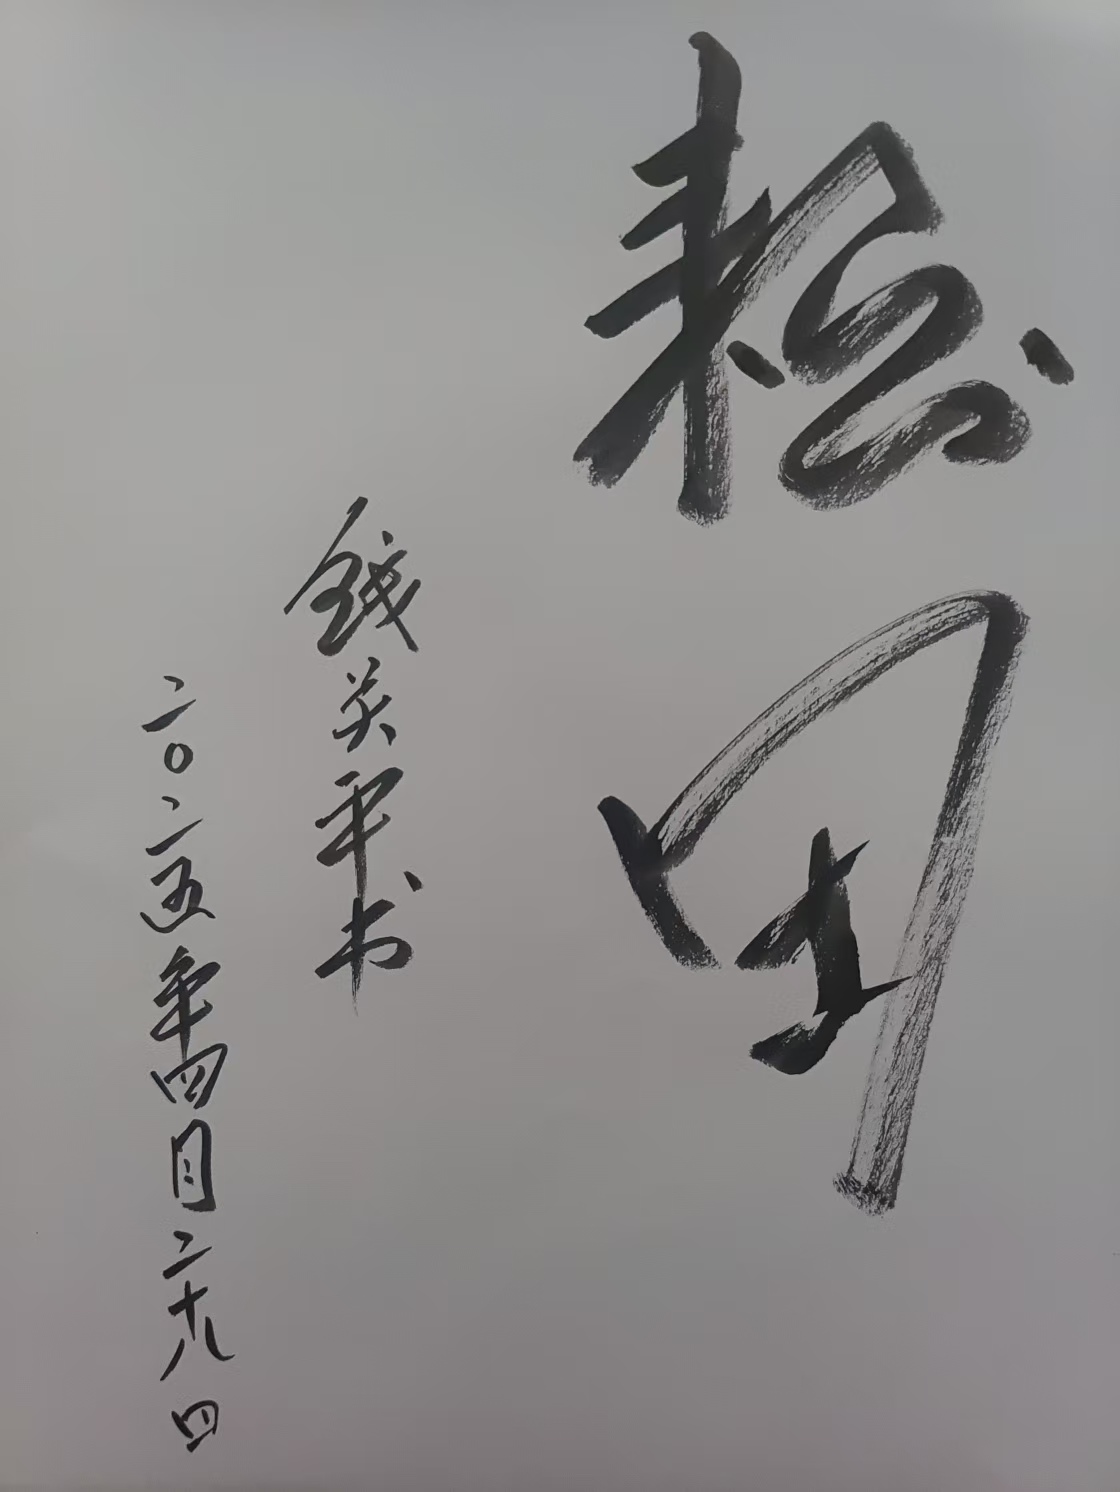 钱英平书
二〇二五年四月二十八日